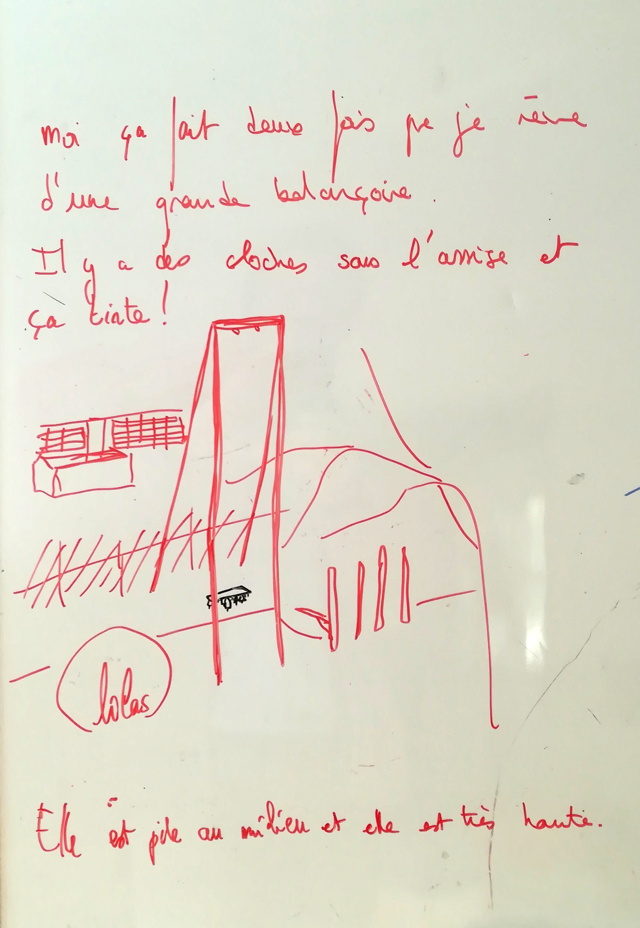 moi ça fait deux fois que je rêve
d'une grande balançoire.
Il y a des cloches sous l'assise et
ça tinte !
lilas
Elle est pile au milieu et elle est très haute.